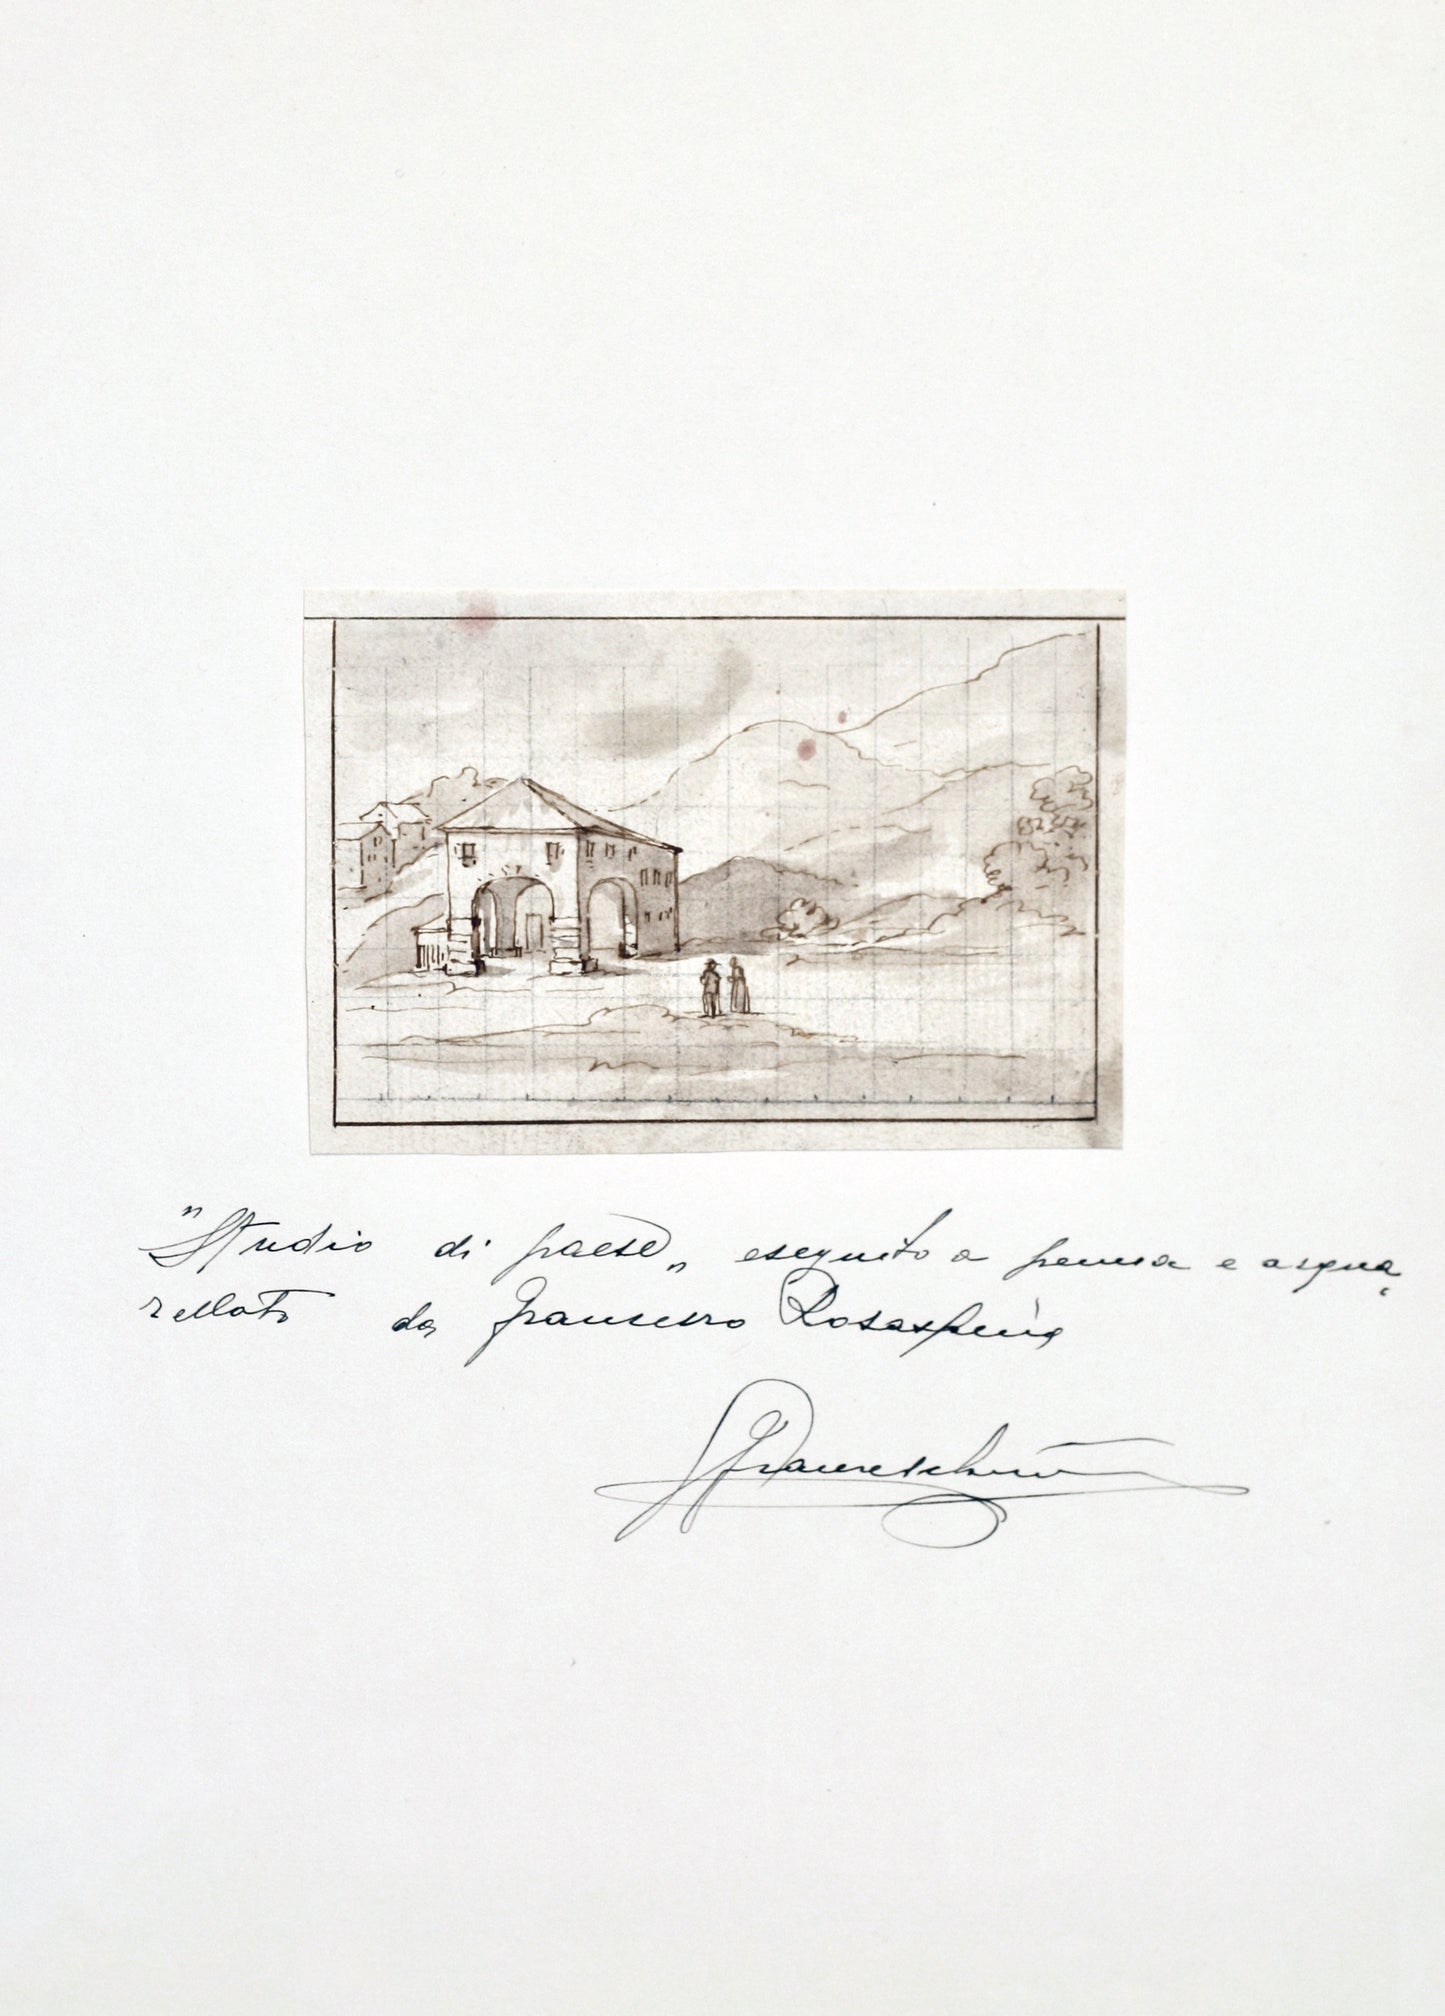 "Studio di paese„ eseguito a penna e acqua,
rellato da Francesco Rosaspina